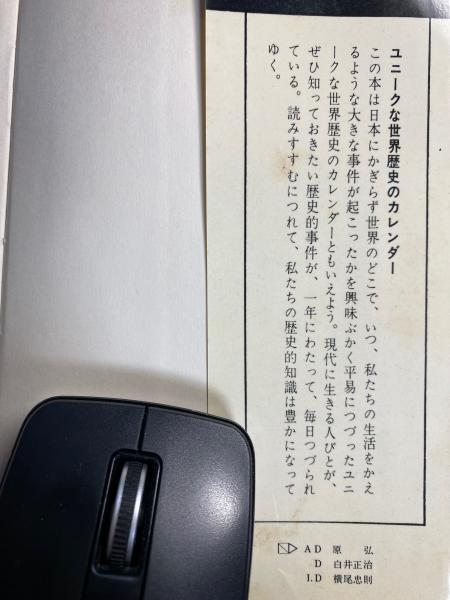 ユニークな世界歴史のカレンダー
この本は日本にかぎらず世界のどこで、いつ、私たちの生活をかえ
るような大きな事件が起こったかを興味ぶかく平易につづったユニ
ークな世界歴史のカレンダーともいえよう。現代に生きる人びとが、
ぜひ知っておきたい歴史的事件が、一年にわたって、毎日つづられ
ている。読みすすむにつれて、私たちの歴史的知識は豊かになって
ゆく。
AD 原 弘
D 白井正治
I.D 横尾忠則